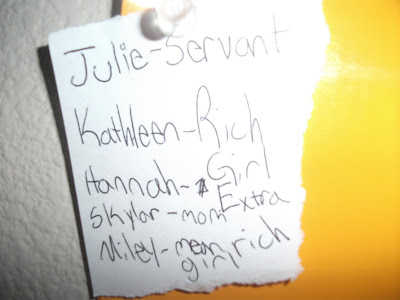 Julie-Servant
Kathleen-Rich
Girl
Hannah-Extra
Skylar-mom
Miley-mean rich
girl